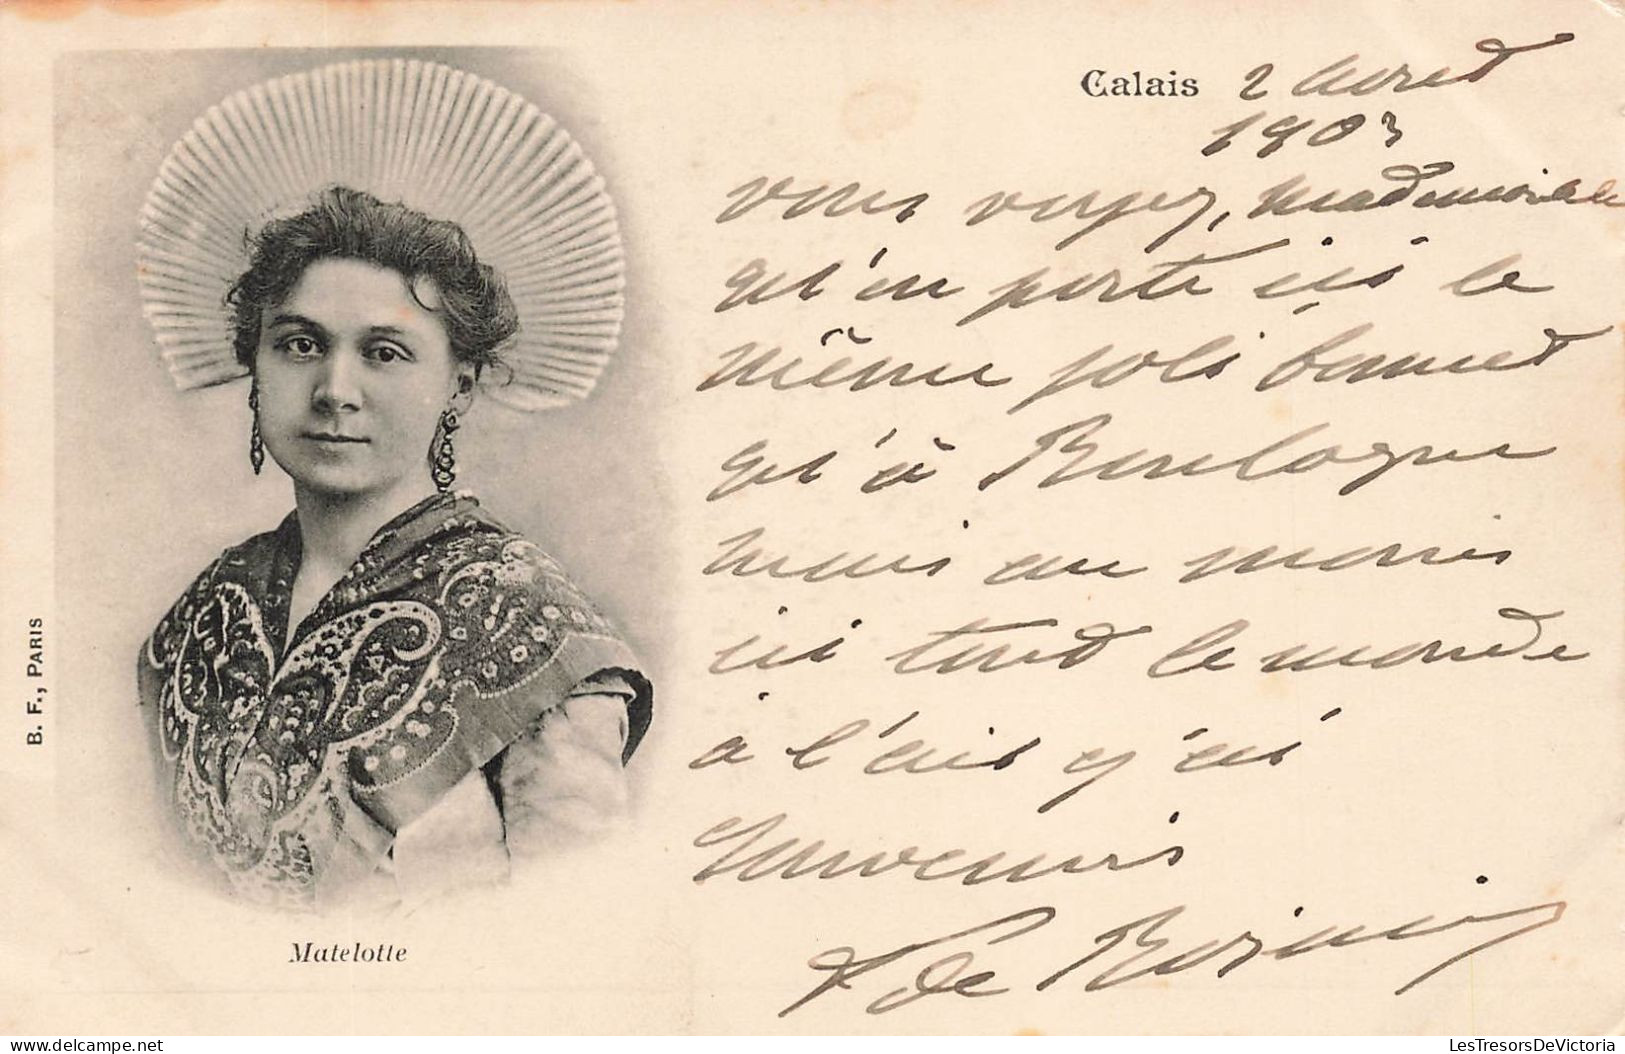 Calais 2 Août
1903
vous voyez, mademoiselle
qu'on porte ici le
même joli bonnet
qu'à Boulogne
mais au moins
ici tout le monde
à l'air
B. F., PARIS
Matelotte
de
LesTresorsDeVictoria
delcampe.net